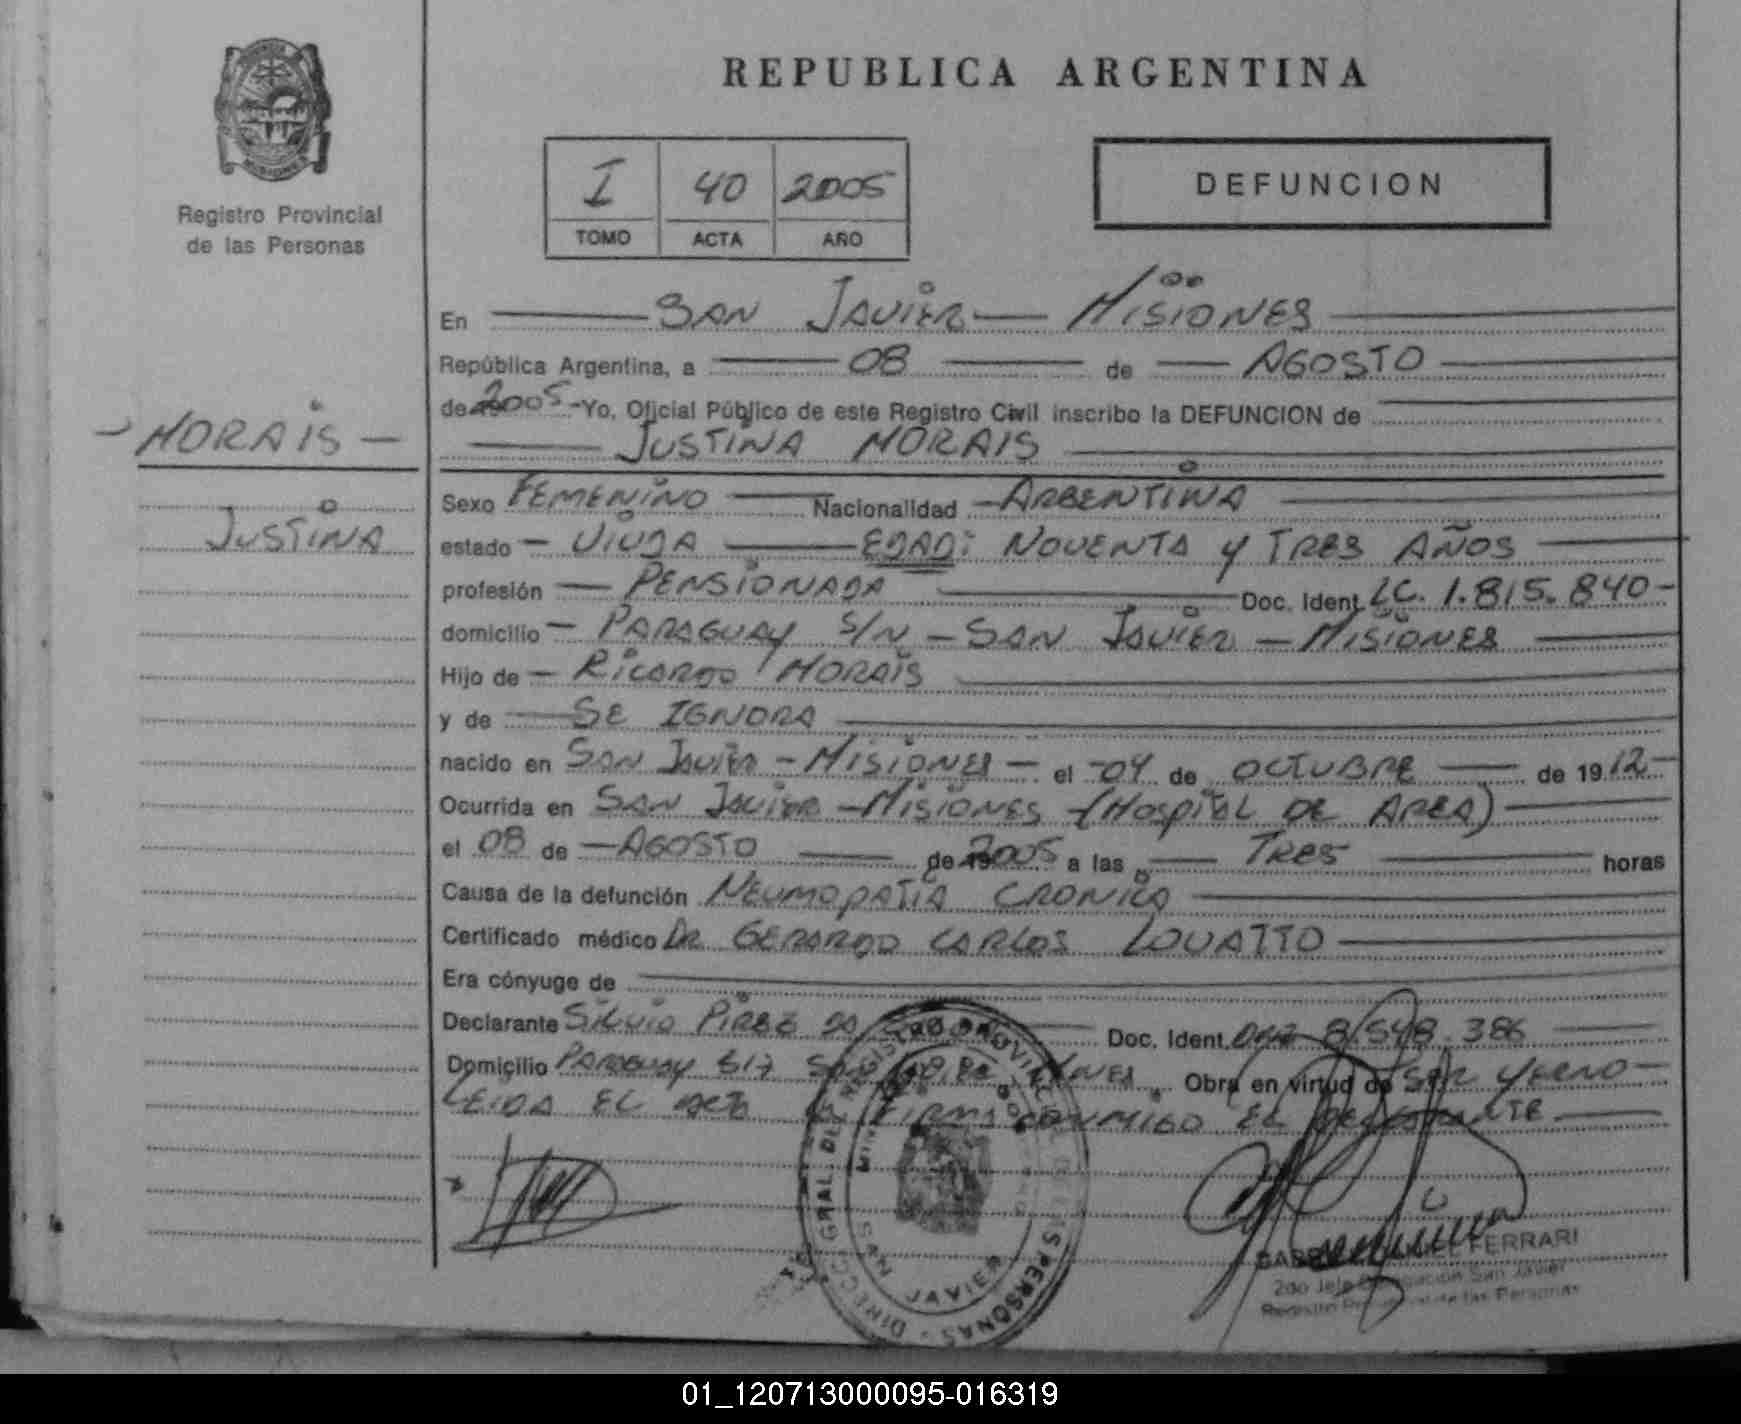 REPUBLICA ARGENTINA
Registro Provincial
de las Personas
I 40 2005
TOMO ACTA AÑO
DEFUNCION
MORAIS
JUSTINA
En SAN JAVIER MISIONES
República Argentina, a 08 de AGOSTO
de 2005 - Yo, Oficial Público de este Registro Civil inscribo la DEFUNCION de
JUSTINA MORAIS
Sexo FEMENINO Nacionalidad ARGENTINA
estado VIUDA EDAD: NOVENTA y TRES AÑOS
profesión PENSIONADA Doc. Ident. LC. 1.815.840
domicilio PARAGUAY S/N - SAN JAVIER - MISIONES
Hijo de RICARDO MORAIS
y de SE IGNORA
nacido en SAN JAVIER - MISIONES - el 04 de OCTUBRE de 1912
Ocurrida en SAN JAVIER - MISIONES - (HOSPITAL DE AREA)
el 08 de AGOSTO de 2005 a las TRES horas
Causa de la defunción NEUMOPATIA CRONICA
Certificado médico DR. GERARDO CARLOS LOVATTO
Era cónyuge de
Declarante SILVIO PIREZ Doc. Ident. 8.548.386
Domicilio PARAGUAY Obra en virtud de SER YERNO
LEIDA EL ACTA FIRMA CONMIGO EL DECLARANTE
DIRECC. GRAL. DEL REGISTRO PROVINCIAL DE LAS PERSONAS
SAN JAVIER
FERRARI
2do Jefe Delegación San Javier
Registro Provincial de las Personas
01_120713000095-016319